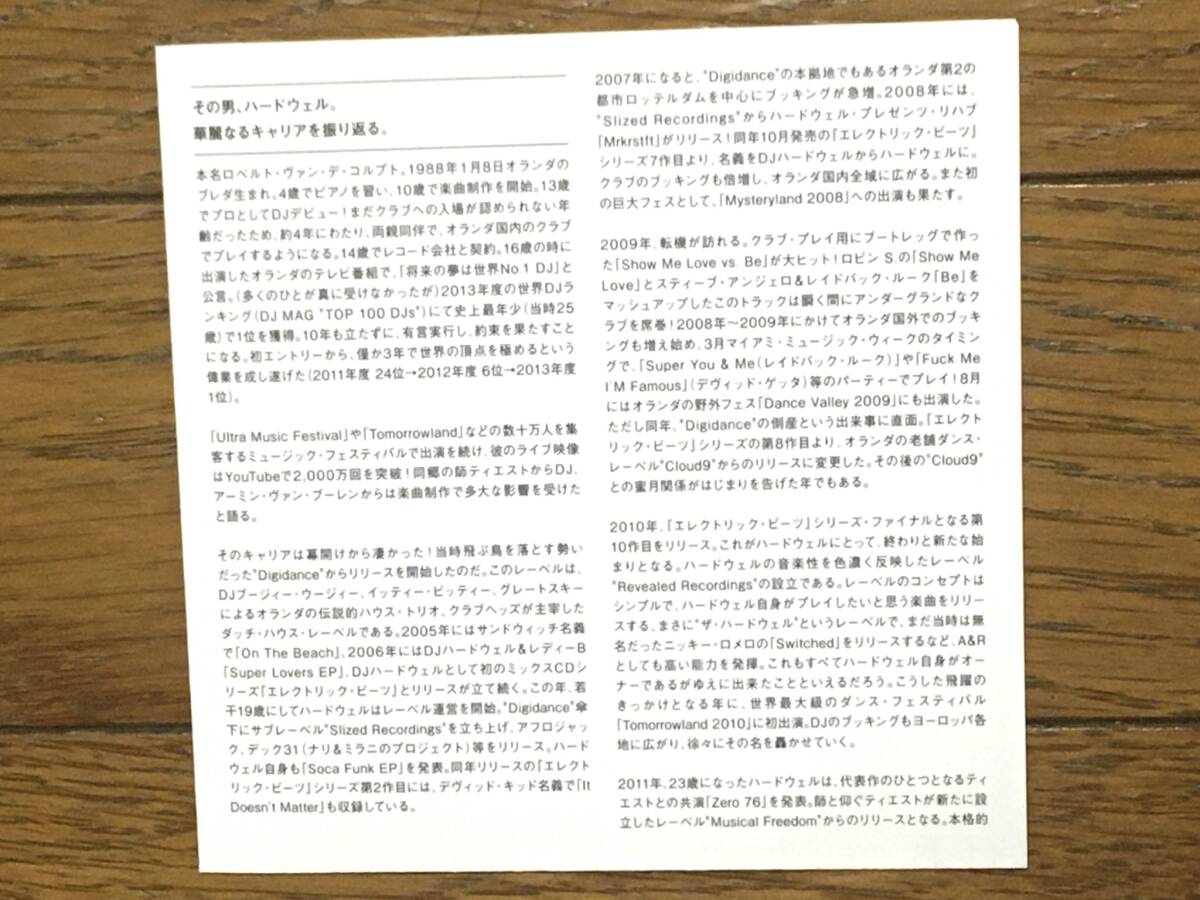 その男、ハードウェル。
華麗なるキャリアを振り返る。
本名ロベルト・ヴァン・デ・コルプト。1988年1月8日オランダの
ブレダ生まれ。4歳でピアノを習い、10歳で楽曲制作を開始。13歳
でプロとしてDJデビュー！まだクラブへの入場が認められない年
齢だったため、約4年にわたり、両親同伴で、オランダ国内のクラブ
でプレイするようになる。14歳でレコード会社と契約。16歳の時に
出演したオランダのテレビ番組で、「将来の夢は世界No.1 DJ」と
公言。(多くのひとが真に受けなかったが)2013年度の世界DJラ
ンキング(DJ MAG "TOP 100 DJs")にて史上最年少(当時25
歳)で1位を獲得。10年も立たずに、有言実行し、約束を果たすこと
になる。初エントリーから、僅か3年で世界の頂点を極めるという
偉業を成し遂げた(2011年度 24位→2012年度 6位→2013年度
1位)。
「Ultra Music Festival」や「Tomorrowland」などの数十万人を集
客するミュージック・フェスティバルで出演を続け、彼のライブ映像
はYouTubeで2,000万回を突破！同郷の師ティエストからDJ、
アーミン・ヴァン・ブーレンからは楽曲制作で多大な影響を受けた
と語る。
そのキャリアは幕開けから凄かった！当時飛ぶ鳥を落とす勢い
だった"Digidance"からリリースを開始したのだ。このレーベルは、
DJブージィー・ウージィー、イッティー・ビッティー、グレートスキー
によるオランダの伝説的ハウス・トリオ、クラブヘッズが主宰した
ダッチ・ハウス・レーベルである。2005年にはサンドウィッチ名義
で「On The Beach」、2006年にはDJハードウェル&レディーB
「Super Lovers EP」、DJハードウェルとして初のミックスCDシ
リーズ『エレクトリック・ビーツ』とリリースが立て続く。この年、若
干19歳にしてハードウェルはレーベル運営を開始。"Digidance"傘
下にサブレーベル"Slized Recordings"を立ち上げ、アフロジャッ
ク、デック31(ナリ&ミラニのプロジェクト)等をリリース。ハード
ウェル自身も「Soca Funk EP」を発表。同年リリースの『エレクト
リック・ビーツ』シリーズ第2作目には、デヴィッド・キッド名義で「It
Doesn't Matter」も収録している。
2007年になると、"Digidance"の本拠地でもあるオランダ第2の
都市ロッテルダムを中心にブッキングが急増。2008年には、
"Slized Recordings"からハードウェル・プレゼンツ・リハブ
「Mrkrstft」がリリース！同年10月発売の『エレクトリック・ビーツ』
シリーズ7作目より、名義をDJハードウェルからハードウェルに。
クラブのブッキングも倍増し、オランダ国内全域に広がる。また初
の巨大フェスとして、「Mysteryland 2008」への出演も果たす。
2009年、転機が訪れる。クラブ・プレイ用にブートレッグで作っ
た「Show Me Love vs. Be」が大ヒット！ロビン S.の「Show Me
Love」とスティーブ・アンジェロ&レイドバック・ルーク「Be」を
マッシュアップしたこのトラックは瞬く間にアンダーグランドなク
ラブを席巻！2008年〜2009年にかけてオランダ国外でのブッキ
ングも増え始め、3月マイアミ・ミュージック・ウィークのタイミン
グで、「Super You & Me(レイドバック・ルーク)」や「Fuck Me
I'M Famous」(デヴィッド・ゲッタ)等のパーティーでプレイ！8月
にはオランダの野外フェス「Dance Valley 2009」にも出演した。
ただし同年、"Digidance"の倒産という出来事に直面。『エレクト
リック・ビーツ』シリーズの第8作目より、オランダの老舗ダンス・
レーベル"Cloud9"からのリリースに変更した。その後の"Cloud9"
との蜜月関係がはじまりを告げた年でもある。
2010年、『エレクトリック・ビーツ』シリーズ・ファイナルとなる第
10作目をリリース。これがハードウェルにとって、終わりと新たな始
まりとなる。ハードウェルの音楽性を色濃く反映したレーベル
"Revealed Recordings"の設立である。レーベルのコンセプトは
シンプルで、ハードウェル自身がプレイしたいと思う楽曲をリリー
スする、まさに"ザ・ハードウェル"というレーベルで、まだ当時は無
名だったニッキー・ロメロの「Switched」をリリースするなど、A&R
としても高い能力を発揮。これもすべてハードウェル自身がオー
ナーであるがゆえに出来たことといえるだろう。こうした飛躍の
きっかけとなる年に、世界最大級のダンス・フェスティバル
「Tomorrowland 2010」に初出演。DJのブッキングもヨーロッパ各
地に広がり、徐々にその名を轟かせていく。
2011年、23歳になったハードウェルは、代表作のひとつとなるティ
エストとの共演「Zero 76」を発表。師と仰ぐティエストが新たに設
立したレーベル"Musical Freedom"からのリリースとなる。本格的